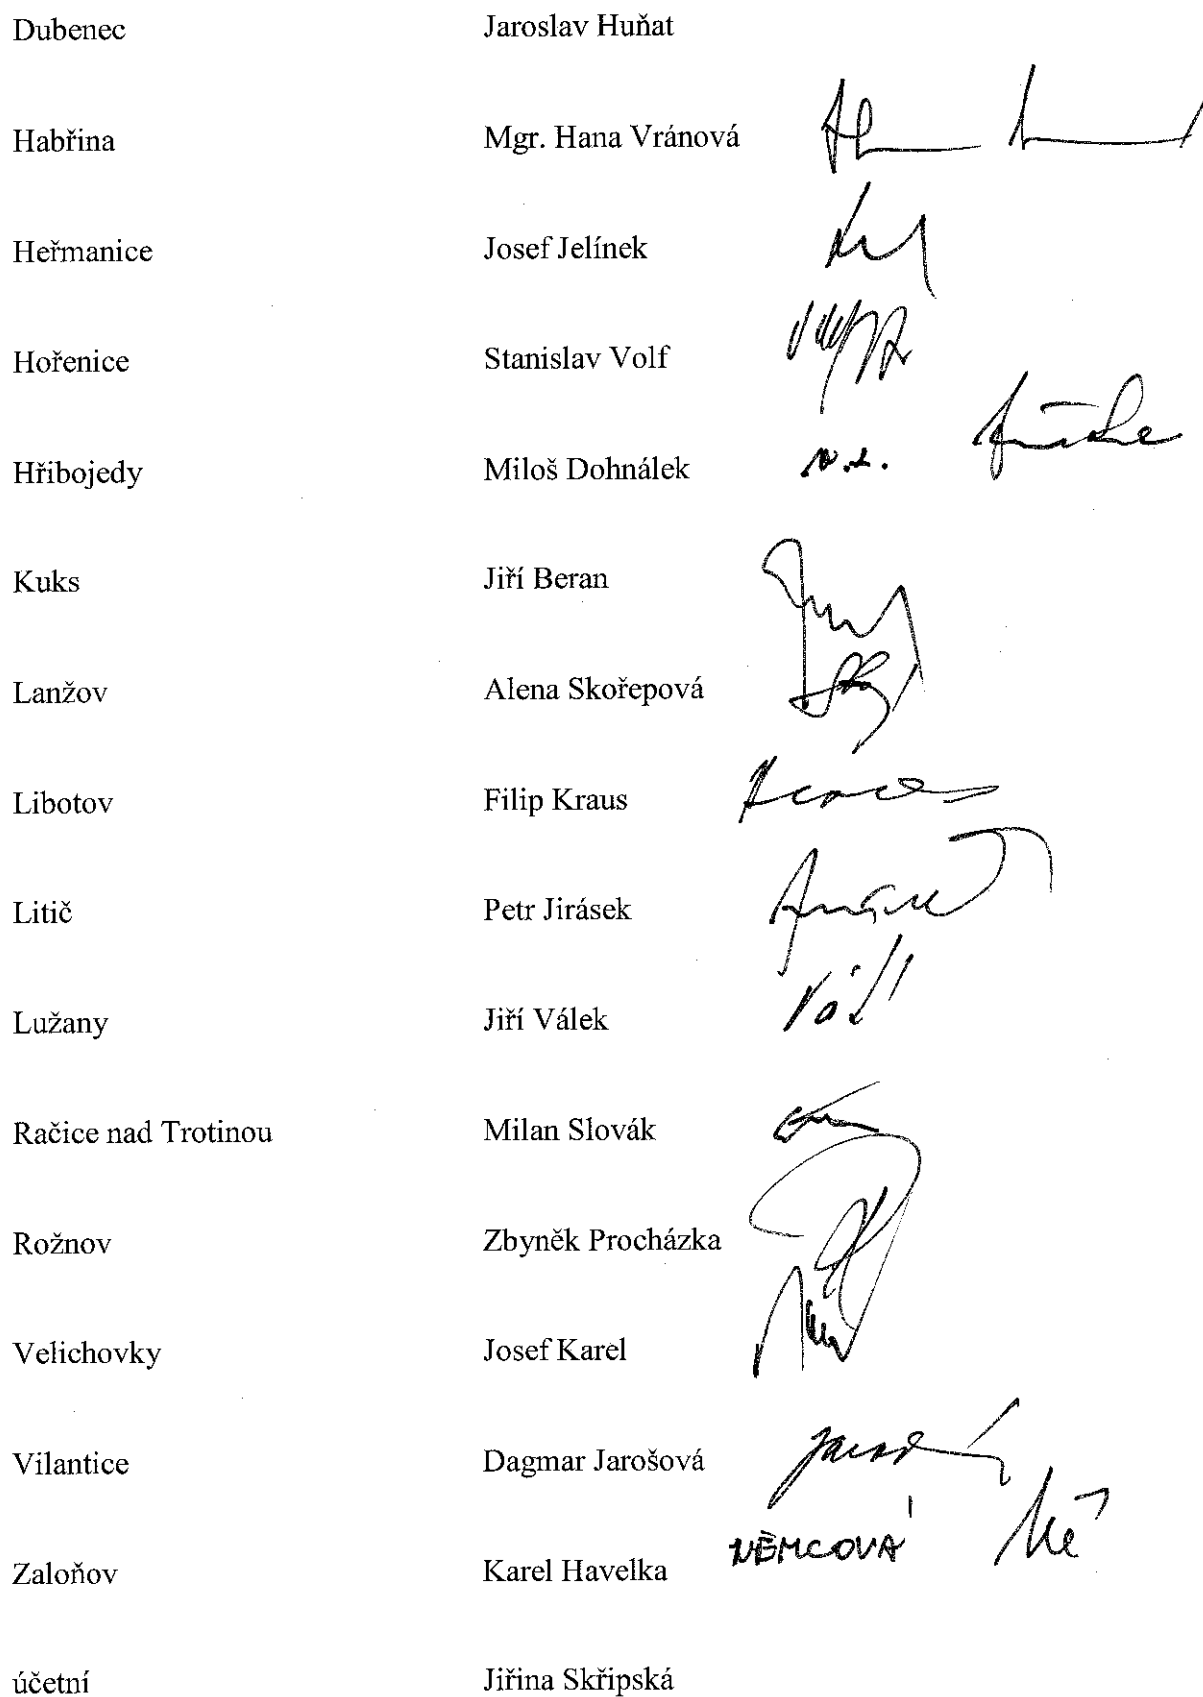 Dubenec Jaroslav Huňat
Habřina Mgr. Hana Vránová
Heřmanice Josef Jelínek
Hořenice Stanislav Volf
Hřibojedy Miloš Dohnálek
Kuks Jiří Beran
Lanžov Alena Skořepová
Libotov Filip Kraus
Litič Petr Jirásek
Lužany Jiří Válek
Račice nad Trotinou Milan Slovák
Rožnov Zbyněk Procházka
Velichovky Josef Karel
Vilantice Dagmar Jarošová
Zaloňov Karel Havelka NĚMCOVÁ
účetní Jiřina Skřipská